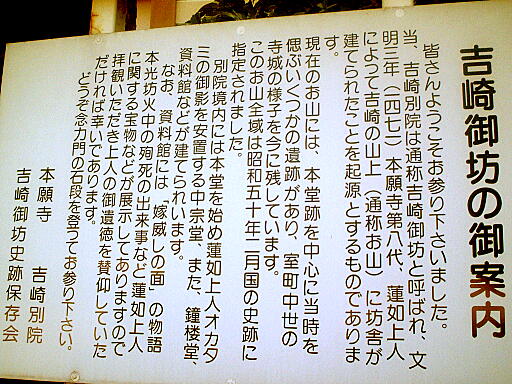 吉崎御坊の御案内
皆さんようこそお参り下さいました。
当、吉崎別院は通称吉崎御坊と呼ばれ、文
明三年(一四七一)本願寺第八代、蓮如上人
によって吉崎の山上(通称お山)に坊舎が
建てられたことを起源とするものでありま
す。
現在のお山には、本堂跡を中心に当時を
偲ぶいくつかの遺跡があり、室町中世の
寺城の様子を今に残しています。
このお山全域は昭和五十年二月国の史跡に
指定されました。
別院境内には本堂を始め蓮如上人オカタ
三の御影を安置する中宗堂、また、鐘楼堂、
資料館などが建てられています。
なお、資料館には「嫁威しの面」の物語
本光坊火中の殉死の出来事など蓮如上人
に関する宝物などが展示してありますので
拝観いただき上人の御遺徳を賛仰していた
だければ幸いであります。
どうぞ念力門の石段を登ってお参り下さい。
本願寺 吉崎別院
吉崎御坊史跡保存会